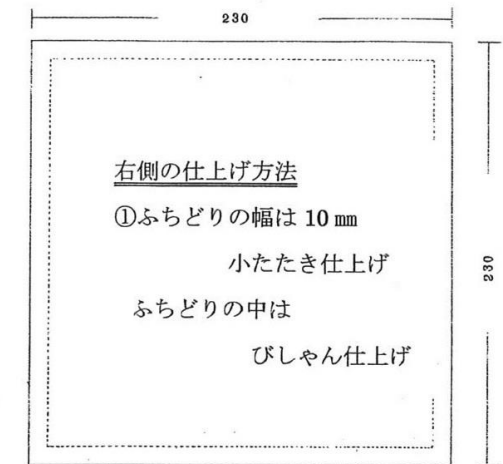 230
右側の仕上げ方法
①ふちどりの幅は 10 ㎜
小たたき仕上げ
ふちどりの中は
びしゃん仕上げ
230